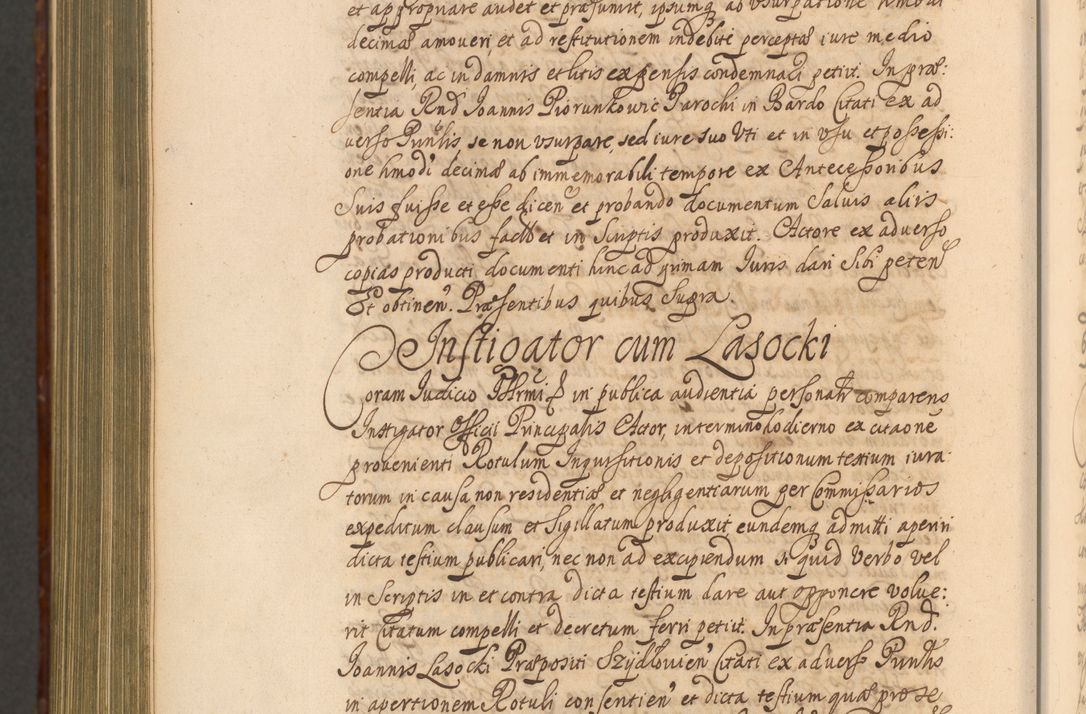 et appropriare audet et præsumit, ipsumq ab vsurpatione hmodi
decimæ amoveri, et ad restitutionem indebiti perceptæ iure medio
compelli, ac in damnis et litis expensis condemnari petiit. In præ:
sentia Rnd Joannis Piorunkowic Parochi in Bardo Citati ex ad
verso Pnntis, se non vsurpare, sed iure suo vti et in vsu et possessi:
one hmodi decimæ ab immemorabili tempore ex Antecessoribus
Suis fuisse et esse dicen et probando documentum Salvis aliis
probationibus facto et in Scriptis produxit. Actore ex adverso
copias producti documenti hinc ad primam Juris dari Sibi peten
Et obtinen. Præsentibus quibus Supra.
Instigator cum Lasocki
Coram Judicio in publica audientia personalr comparens
Instigator Officii Principalis Actor, in termino hodierno ex citaone
provenienti Rotulum Inquisitionis et depositionum testium iura
torum in causa non residentiæ et negligentiarum per Commissarios
expeditum clausum et Sigillatum produxit eundemq admitti aperiri
dicta testium publicari, nec non ad excipiendum si quid verbo vel
in Scriptis in et contra dicta testium dare aut opponere volue:
rit Citatum compelli et decretum ferri petiit. In præsentia Rnd.
Joannis Lasocki Præpositi Szydlovien Citati ex adverso Pnntis
in apertionem Rotuli consentien et dicta testium quæ pro se